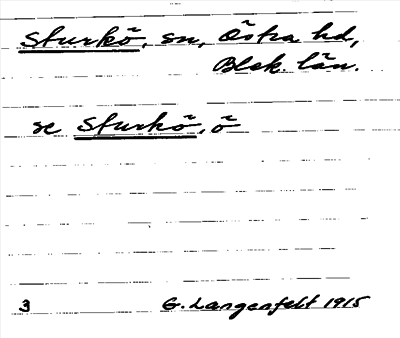 Sturkö, sn, Östra hd,
Blek. län.
se Sturkö, ö
3 G. Langenfelt 1915